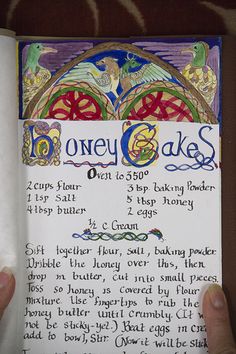 Honey Cakes
Oven to 350°
2 cups flour 3 tsp baking powder
1 tsp salt 5 tbsp honey
4 tbsp butter 2 eggs
½ c. cream
Sift together flour, salt, baking powder.
Dribble the honey over this, then
drop in butter, cut into small pieces.
Toss so honey is covered by flour
mixture. Use fingertips to rub the
honey butter until crumbly. (It w
not be sticky-yet.) Beat eggs in crea
add to bowl, stir. (Now it will be stick